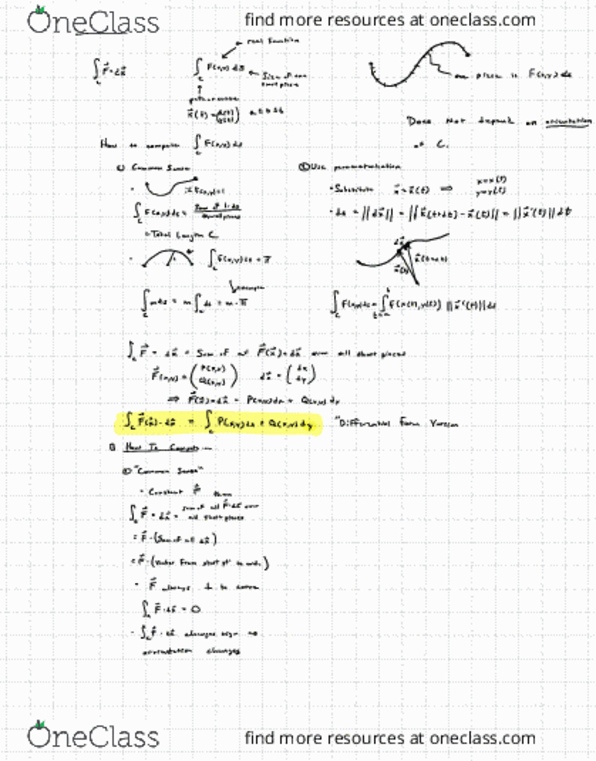 OneClass find more resources at oneclass.com
∫_C F⃗·dx⃗
∫_C F(x,y) ds
real function
size of
x⃗(t) = (x(t) y(t)) a≤t≤b
on place is F(x,y) ds
Does Not depend on orientation
of C.
How to compute ∫_C F(x,y) ds
① Common Sense
∫_C F(x,y) ds =
= Total Length C
∫_C F(x,y) ds = π
example
∫_C m ds = m ∫_C ds = m·π
② Use parametrization
· Substitute x⃗ = x⃗(t) ⇒ x = x(t) y = y(t)
· ds = ||dx⃗|| = ||x⃗(t+dt) - x⃗(t)|| = ||x⃗'(t)|| dt
dx⃗
x⃗(t) x⃗(t+dt)
∫_C F(x,y) ds = ∫_{t=a}^b F(x(t), y(t)) ||x⃗'(t)|| dt
∫_C F⃗·dx⃗ = Sum of all F⃗(x⃗)·dx⃗ over all short pieces
F⃗(x,y) = (P(x,y) Q(x,y)) dx⃗ = (dx dy)
⇒ F⃗(x⃗)·dx⃗ = P(x,y) dx + Q(x,y) dy
∫_C F⃗(x⃗)·dx⃗ = ∫_C P(x,y) dx + Q(x,y) dy "Differential Form Version
How To Compute...
① "Common Sense"
· Constant F⃗ then
∫_C F⃗·dx⃗ = sum of all F⃗·dx⃗ over all short pieces
= F⃗·(Sum of all dx⃗)
= F⃗·(Vector From start pt to end.)
· F⃗ always ⊥ to curve
∫_C F⃗·dx⃗ = 0
· ∫_C F⃗·dx⃗ changes sign as
orientation changes
OneClass find more resources at oneclass.com